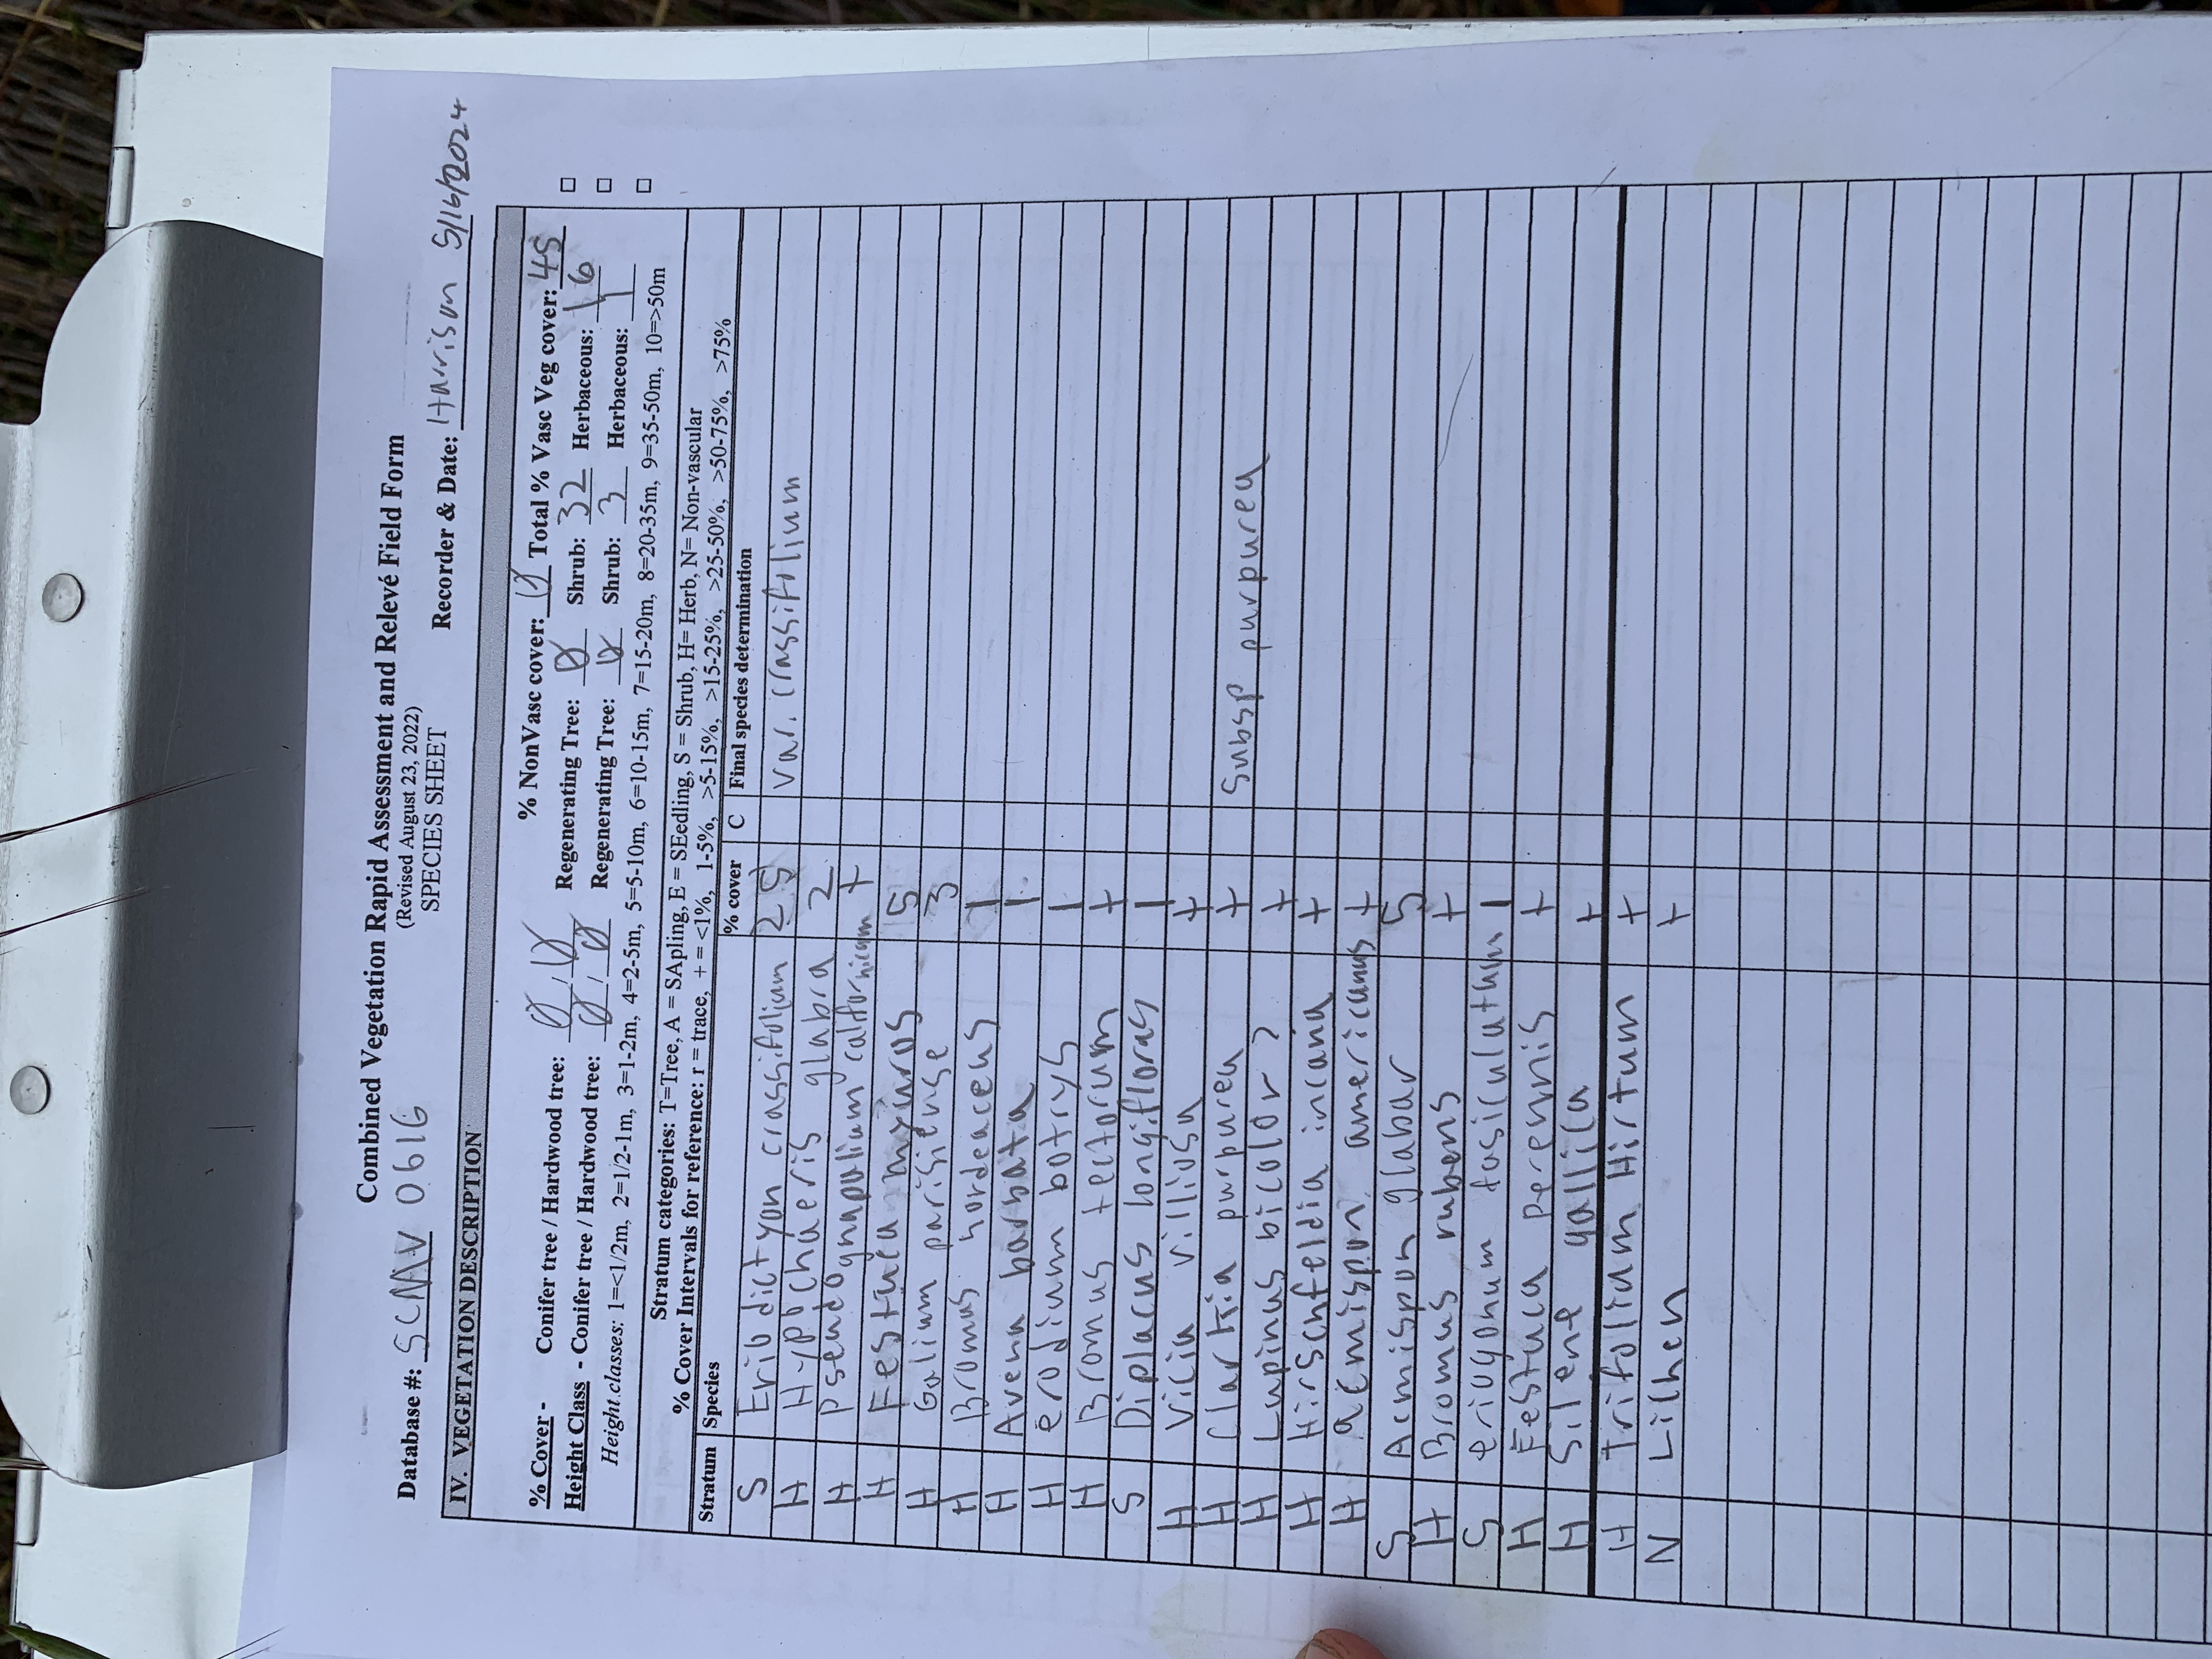 Combined Vegetation Rapid Assessment and Relevé Field Form
(Revised August 23, 2022)
SPECIES SHEET
Database #: SCMAV 0616 Recorder & Date: Harrison 5/16/2024
IV. VEGETATION DESCRIPTION
% NonVasc cover: 0 Total % Vasc Veg cover: 45
% Cover - Conifer tree / Hardwood tree: 0 / 0 Regenerating Tree: 0 Shrub: 32 Herbaceous: 16
Height Class - Conifer tree / Hardwood tree: 0 / 0 Regenerating Tree: 0 Shrub: 3 Herbaceous: 1
Height classes: 1=<1/2m, 2=1/2-1m, 3=1-2m, 4=2-5m, 5=5-10m, 6=10-15m, 7=15-20m, 8=20-35m, 9=35-50m, 10=>50m
Stratum categories: T=Tree, A = SApling, E = SEedling, S = Shrub, H= Herb, N= Non-vascular
% Cover Intervals for reference: r = trace, + = <1%, 1-5%, >5-15%, >15-25%, >25-50%, >50-75%, >75%
Stratum Species % cover C Final species determination
S Eriodictyon crassifolium 25 var. crassifolium
H Hypochaeris glabra 2
H Pseudognapalium californicum +
H Festuca myuros 5
H Galium parisiense 3
H Bromus hordeaceus 1
H Avena barbata 1
H erodium botrys 1
H Bromus tectorum +
S Diplacus longifloras 1
H Vicia villiosa +
H Clarkia purpurea + Subsp purpurea
H Lupinus bicolor ? +
H Hirschfeldia incana +
H acmispon americanus +
S Acmispon glabar 5
H Bromus rubens +
S eriogonum fasiculatum 1
H Festuca perennis +
H Silene gallica +
H Trifolium Hirtum +
N Lichen +